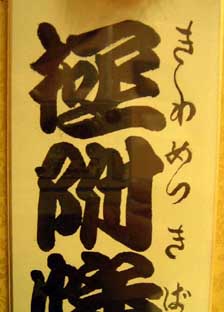 きわめつきば
極附幡